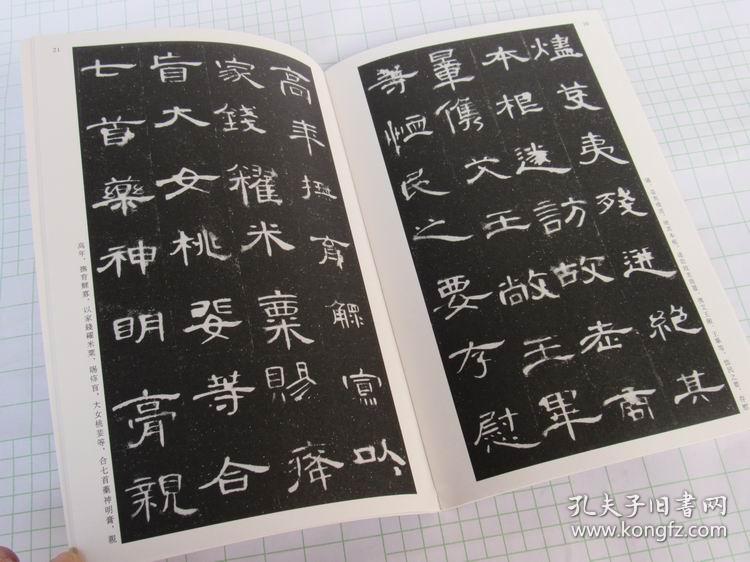 燼芟夷殘迸絕其
本根遂訪故老商
量儁艾王敞王畢
等恤民之要存慰
21
高年撫育鰥寡以
家錢糴米粟賜𤸇
盲大女桃婓等合
七首藥神明膏親
高年，撫育鰥寡，以家錢糴米粟，賜癃盲，大女桃婓等，合七首藥神明膏，親
孔夫子旧书网
www.kongfz.com